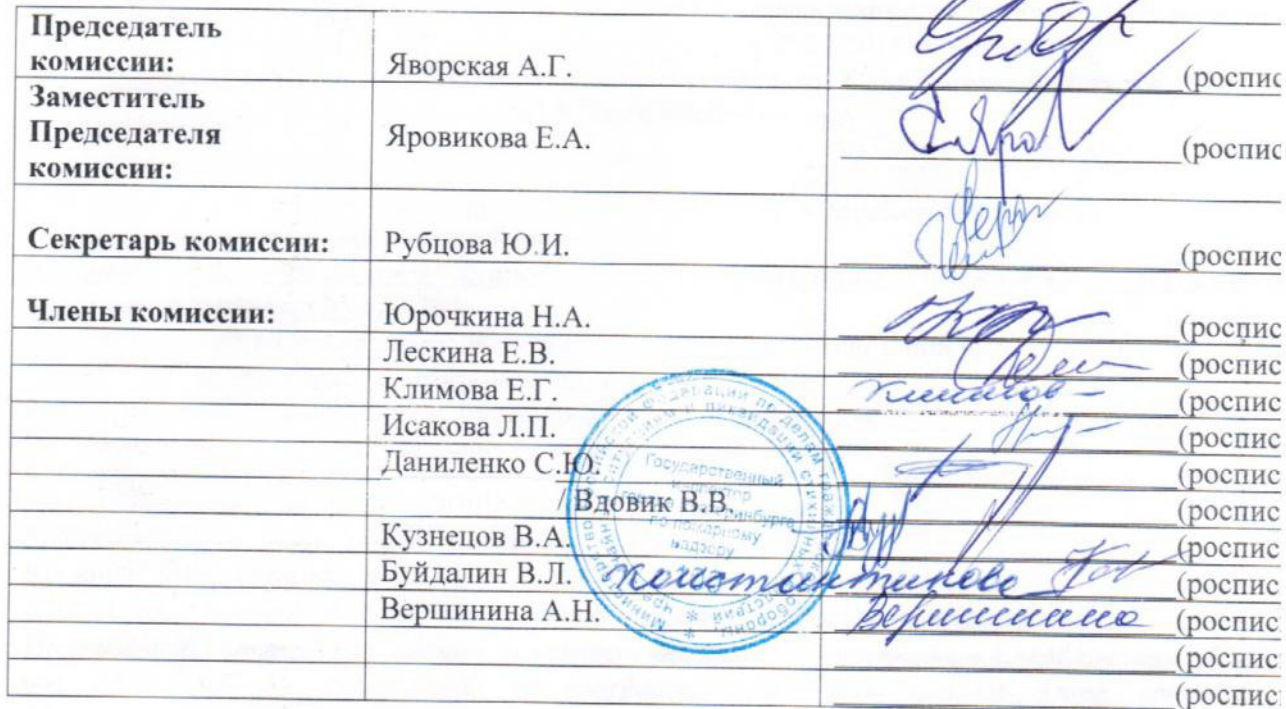 Председатель
комиссии:
Яворская А.Г.
(роспис
Заместитель
Председателя
комиссии:
Яровикова Е.А.
(роспис
Секретарь комиссии:
Рубцова Ю.И.
(роспис
Члены комиссии:
Юрочкина Н.А.
(роспис
Лескина Е.В.
(роспис
Климова Е.Г.
(роспис
Исакова Л.П.
(роспис
Даниленко С.Ю.
(роспис
/ Вдовик В.В.
(роспис
Кузнецов В.А.
(роспис
Буйдалин В.Л.
(роспис
Вершинина А.Н.
Вершинина
(роспис
(роспис
(роспис
Государственный
инспектор
по пожарному
надзору